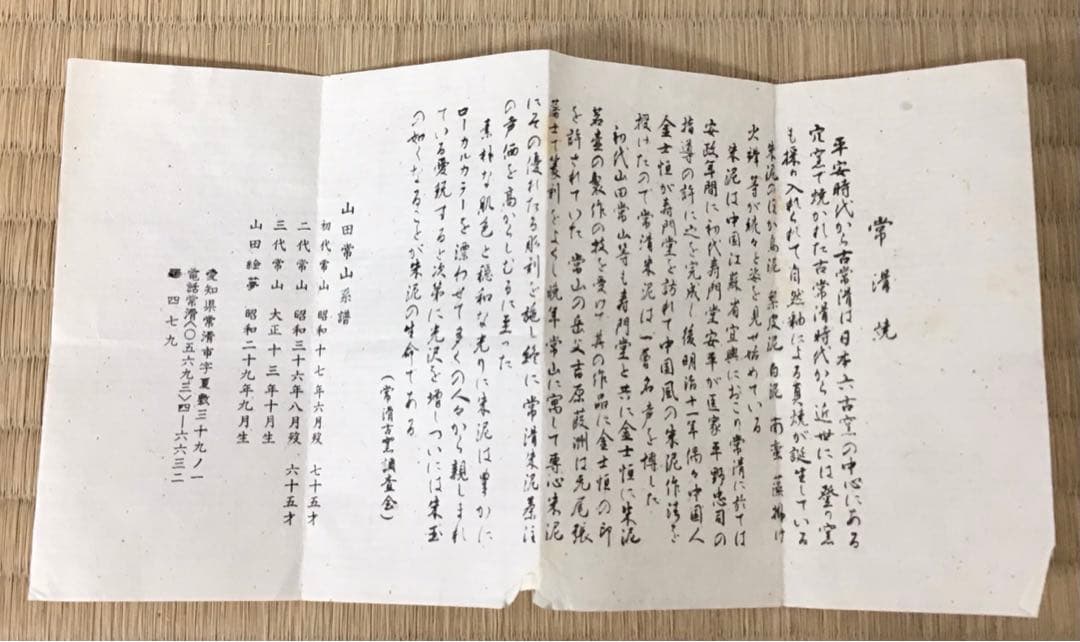 常滑焼
平安時代から古常滑は日本六古窯の中心にある
穴窯で焼かれた古常滑時代から近世には登り窯
も採り入れられて自然釉による真焼が誕生している
朱泥のほか烏泥 梨皮泥 白泥 南蛮 藻掛け
火襷等が続々と姿を見せ始めている
朱泥は中国江蘇省宜興におこり常滑に於ては
安政年間に初代寿門堂安平が医家平野忠司の
指導の許に之を完成し後明治十一年偶々中国人
金士恒が寿門堂を訪れて中国風の朱泥作法を
授けたので常滑朱泥は一層名声を博した
初代山田常山等も寿門堂と共に金士恒に朱泥
茗壷の製作の技を受けて其の作品に金士恒の印
を許されていた 常山の岳父吉原葭洲は元尾張
藩士で篆刻をよくし晩年常山に寓して専心朱泥
にその優れたる彫刻を施し終に常滑朱泥茶注
の声価を高からしむるに至った
素朴な肌色と穏和な光りに朱泥は豊かに
ローカルカラーを漂わせて多くの人々から親しまれ
ている愛玩すると次第に光沢を増しついには朱玉
の如くなることが朱泥の生命である
(常滑古窯調査会)
山田常山系譜
初代常山 昭和十七年六月歿 七十五才
二代常山 昭和三十六年八月歿 六十五才
三代常山 大正十三年十月生
山田絵夢 昭和二十九年九月生
愛知県常滑市字夏敷三十九ノ一
電話常滑〈〇五六九三〉四―六六三二
四七九